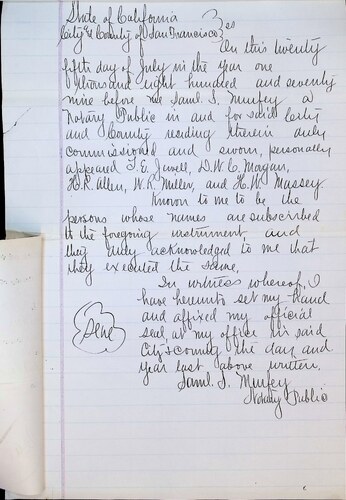 State of California
City & County of San Francisco } ss
On this twenty
fifth day of July in the year one
thousand eight hundred and seventy
nine before me Saml. S. Murfey a
Notary Public in and for said City
and County residing therein duly
commissioned and sworn, personally
appeared T. E. Jewell, D. W. C. Magan,
H. R. Allen, W. R. Miller, and H. W. Massey
known to me to be the
persons whose names are subscribed
to the foregoing instrument and
they duly acknowledged to me that
they executed the same.
In witness whereof, I
have hereunto set my hand
and affixed my official
Seal
seal, at my office in said
City & County the day and
year last above written.
Saml. S. Murfey
Notary Public